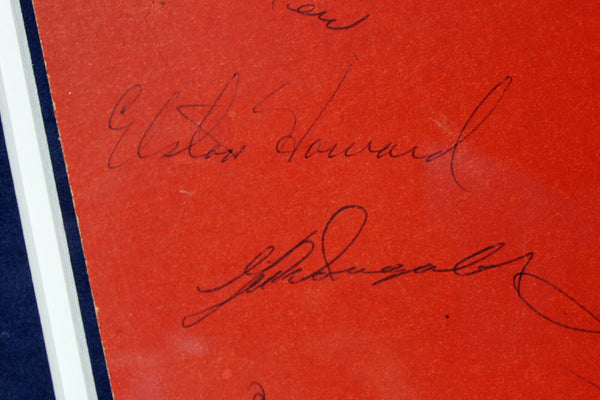 Elston Howard
Gil McDougald